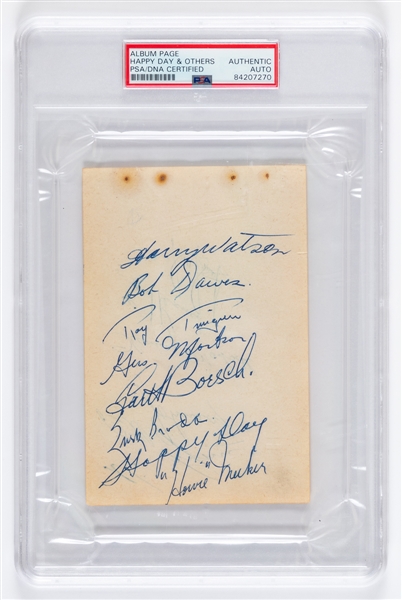 ALBUM PAGE
HAPPY DAY & OTHERS AUTHENTIC
PSA/DNA CERTIFIED AUTO
PSA 84207270
Harry Watson
Bob Dawes.
Ray Timgren
Gus Mortson
Garth Boesch.
Turk Broda.
Happy Day
"Howie" Meeker